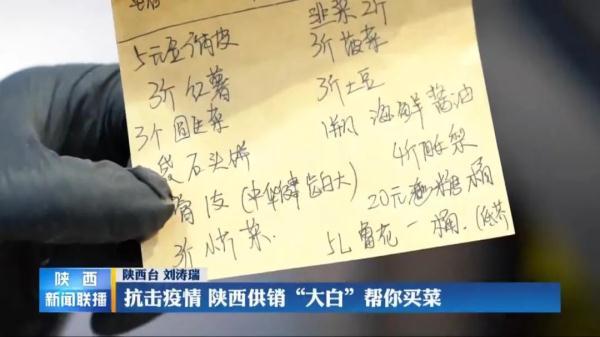 韭菜2斤
5元豆腐皮
3斤菠菜
3斤红薯
3斤土豆
3个圆韭菜
1瓶海鲜酱油
袋石头饼
4斤酥梨
膏1支(中华健齿白大)
20元 糖
3斤小片菜.
5L鲁花一桶.
陕西台 刘涛瑞
陕西
新闻联播
抗击疫情 陕西供销“大白”帮你买菜